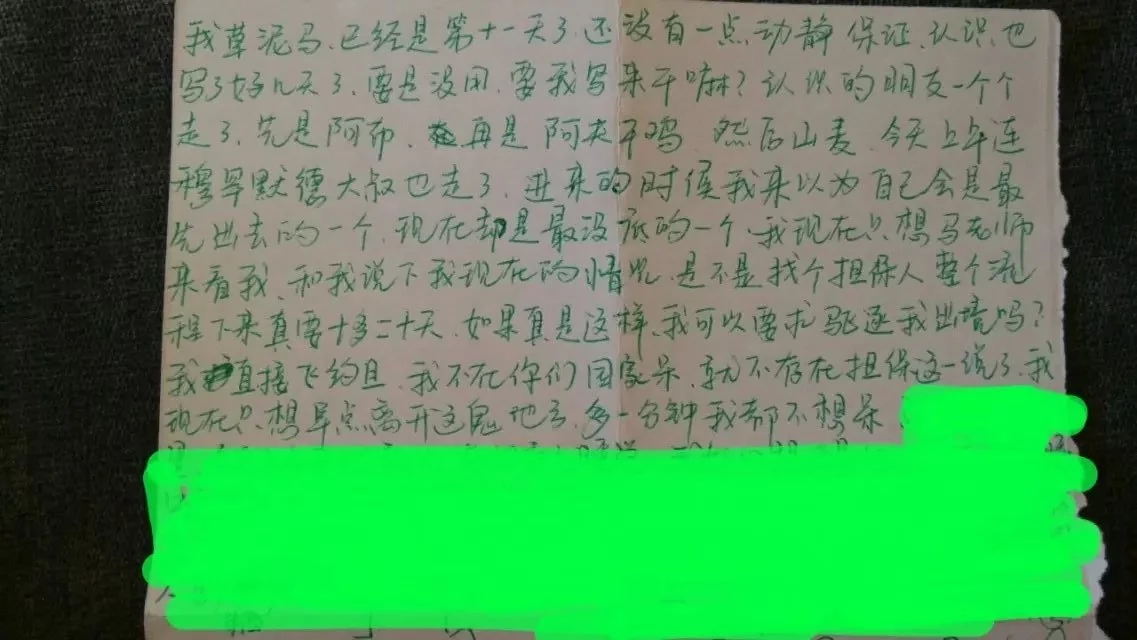 我草泥马,已经是第十一天了,还没有一点动静 保证、认识也
写了好几天了、要是没用,要我写来干嘛?认识的朋友一个个
走了,先是阿布、再是 阿夫干鸡 然后山麦、今天上午连
穆罕默德大叔也走了、进来的时候我来以为自己会是最
先出去的一个,现在却是最没底的一个、我现在只想马老师
来看我、和我说下我现在的情况、是不是找个担保人整个流
程下来真要十多二十天、如果真是这样、我可以要求 驱逐我出境吗?
我直接飞约旦、我不在你们国家呆、就不存在担保这一说了、我
现在只想早点离开这鬼地方,多一分钟我都不想呆